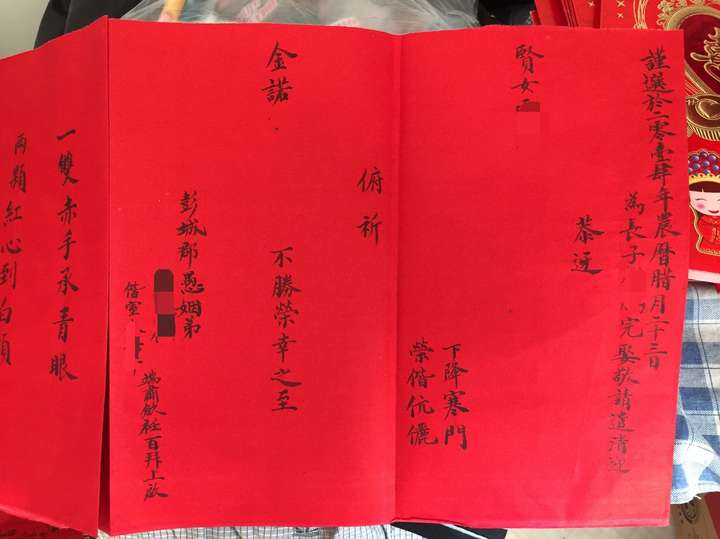 謹選於二零壹肆年農曆腊月二十三日
為長子
完娶敬請遣清迎
恭迓
賢女
下降寒門
榮偕伉儷
俯祈
金諾
不勝榮幸之至
彭城郡愚姻弟
偕室
端肅斂衽百拜上啟
一雙赤手承青眼
兩顆紅心到白頭
囍